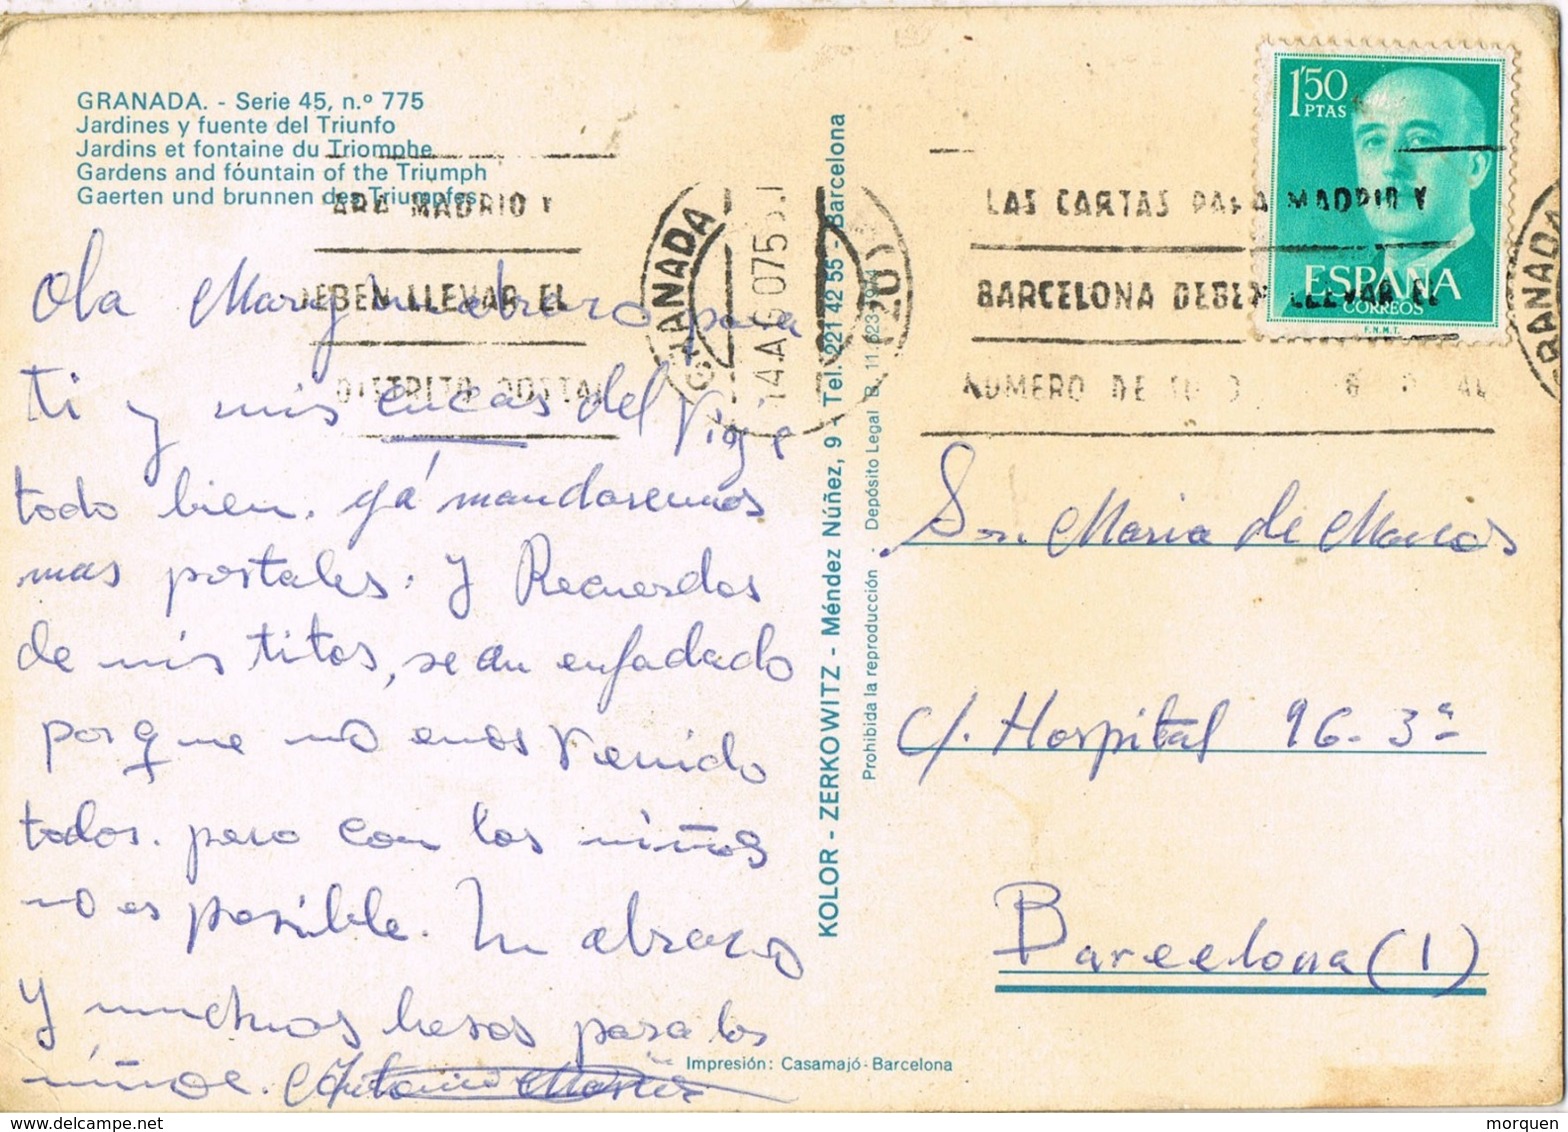 GRANADA. - Serie 45, n.º 775
Jardines y fuente del Triunfo
Jardins et fontaine du Triomphe
Gardens and fountain of the Triumph
Gaerten und brunnen des Triumpfes
ARA MADRID Y
DEBEN LLEVAR EL
DISTRITO POSTAL
GRANADA
14.AGO75
LAS CARTAS PARA MADRID Y
BARCELONA DEBEN LLEVAR EL
NUMERO DE
GRANADA
1'50
PTAS
ESPAÑA
CORREOS
F.N.M.T.
Ola Mary Un abrazo para
ti y mis cucas del Viaje
todo bien. yá mandaremos
mas postales. y Recuerdos
de mis titos, se an enfadado
porque no emos Venido
todos. pero con los niños
no es posible. Un abrazo
y muchos besos para los
niños. Antonio
KOLOR - ZERKOWITZ - Méndez Núñez, 9 - Tel. 221 42 55 - Barcelona
Prohibida la reproducción - Depósito Legal B. 11.623-
Sra. Maria de Marcos
c/. Hospital 96-3ª
Barcelona (1)
Impresión: Casamajó - Barcelona
morquen